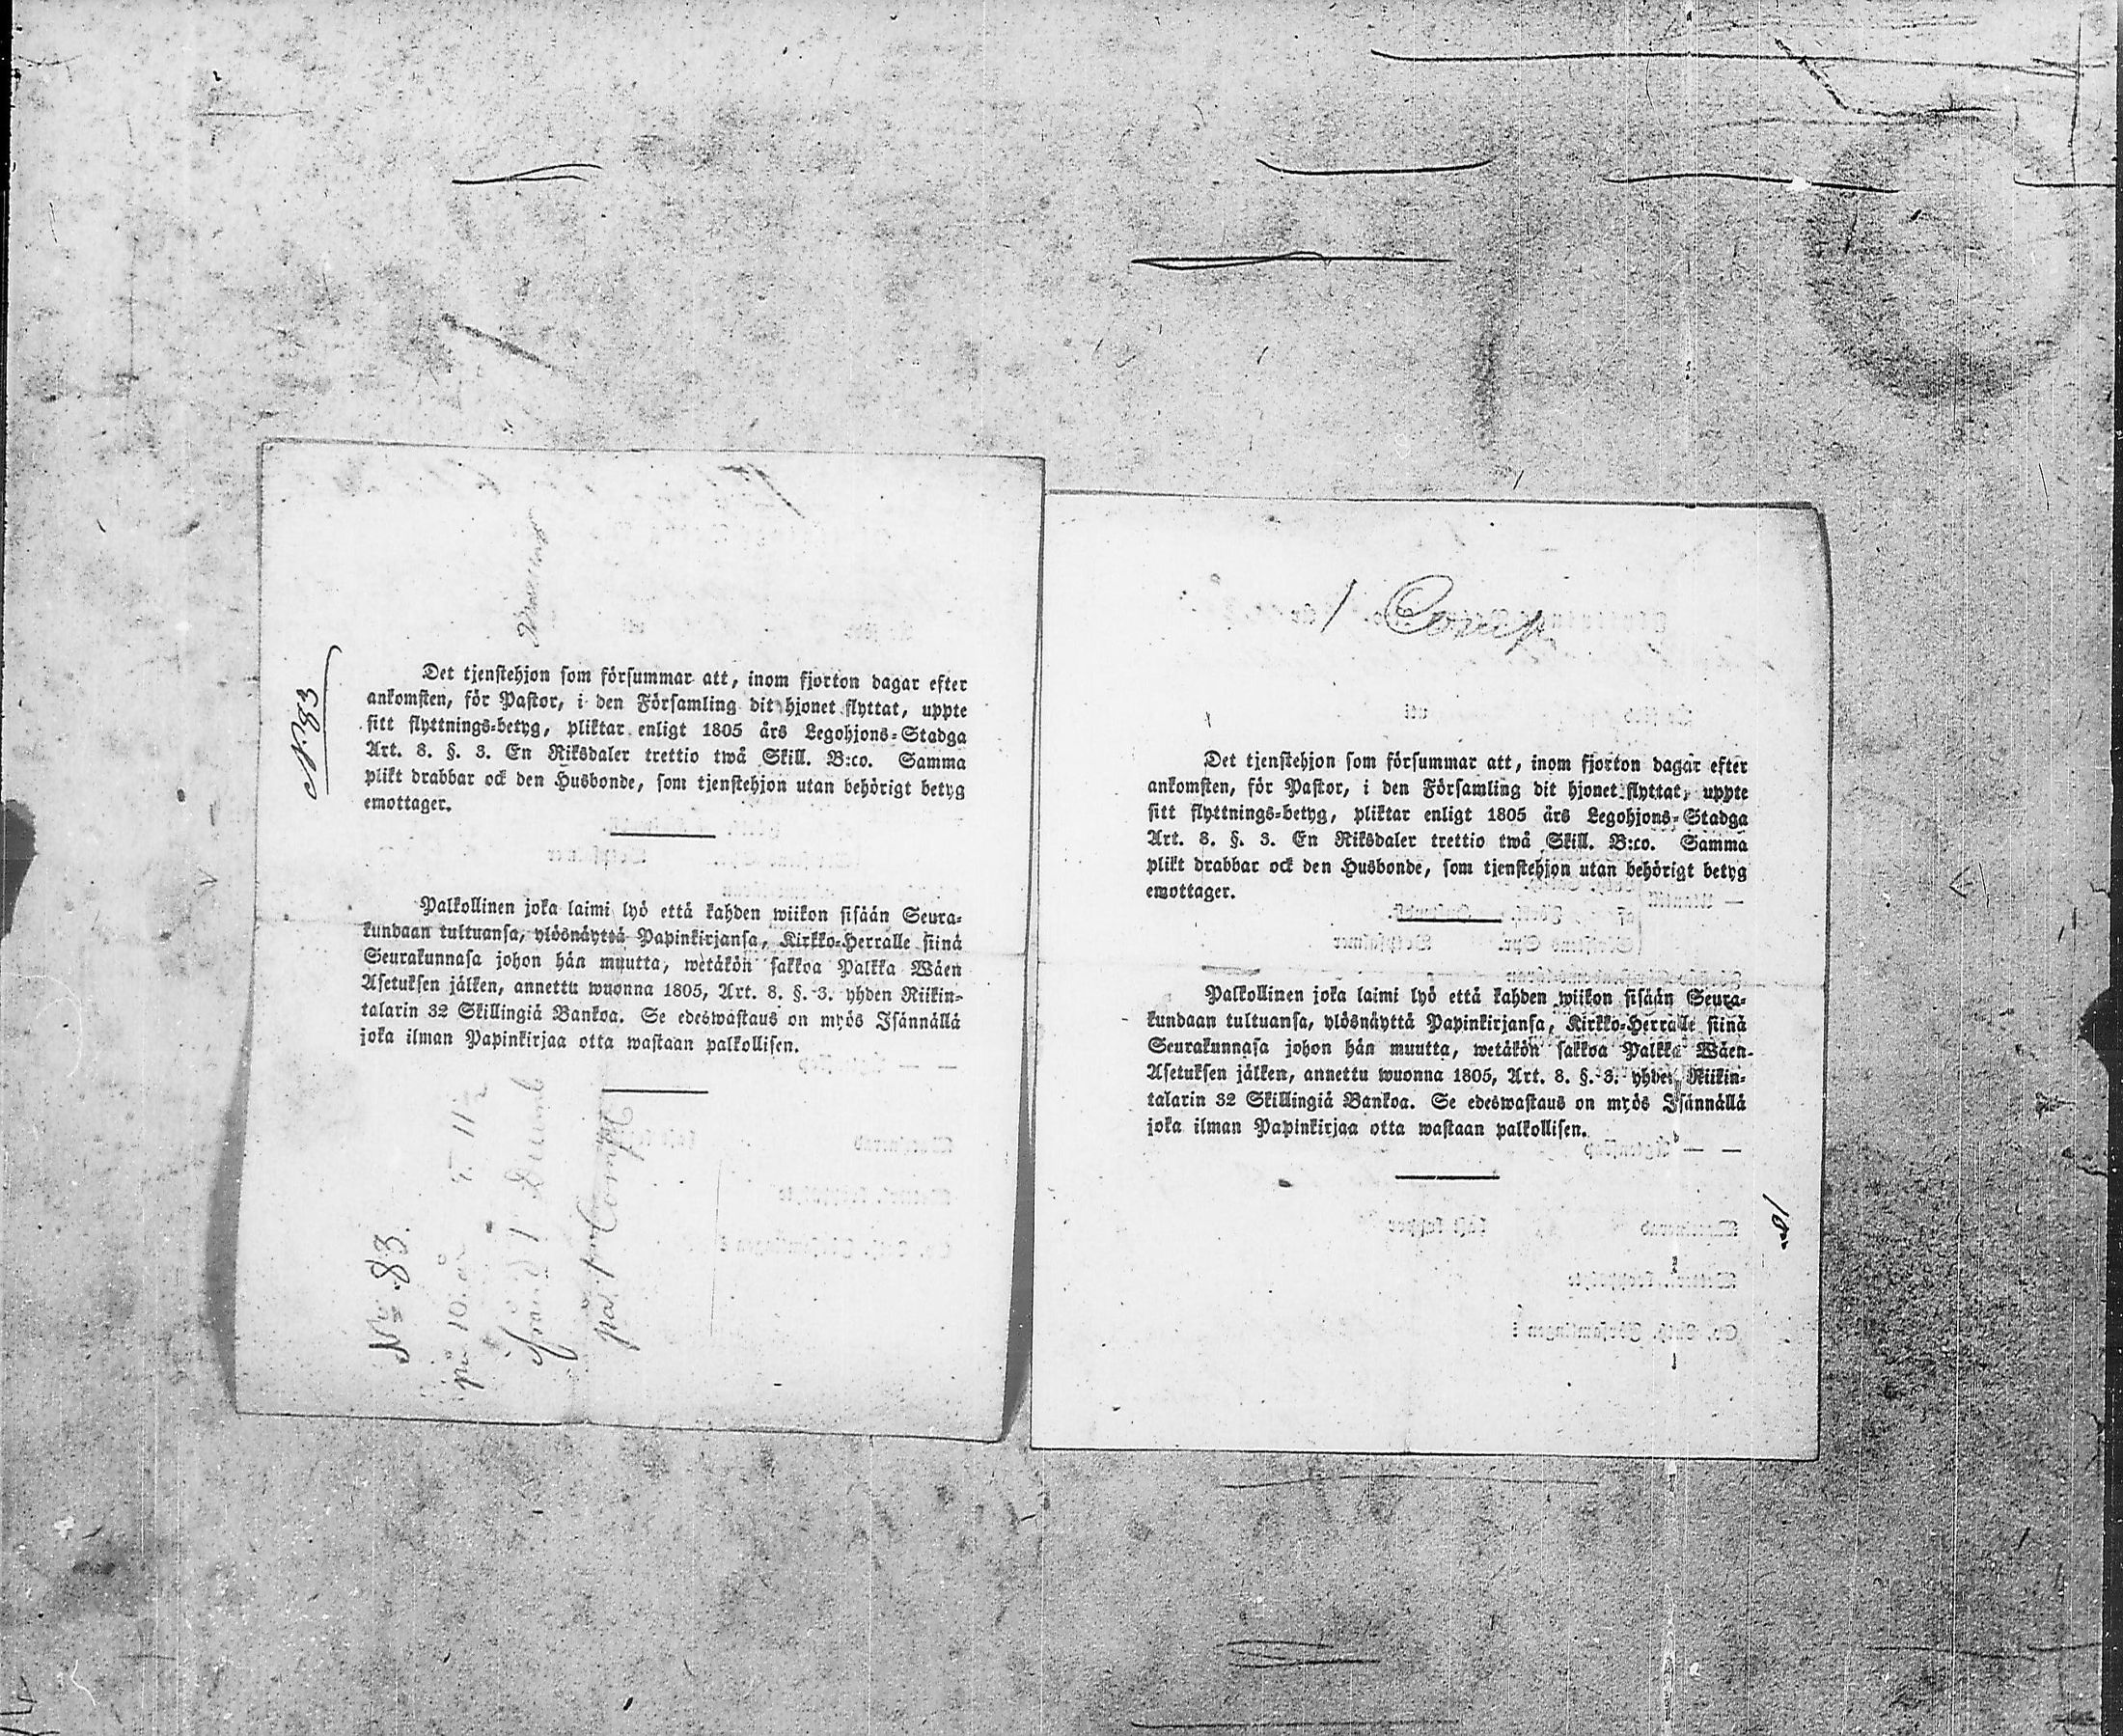 N:o 83
Det tjenstehjon som försummar att, inom fjorton dagar efter
ankomsten, för Pastor, i den Församling dit hjonet flyttat, uppte
sitt flyttnings-betyg, pliktar enligt 1805 års Legohjons-Stadga
Art. 8. §. 3. En Riksdaler trettio twå Skill. B:co. Samma
plikt drabbar ock den Husbonde, som tjenstehjon utan behörigt betyg
emottager.
Palkollinen joka laimi lyö että kahden wiikon sisään Seura-
kundaan tultuansa, ylösnäyttä Papinkirjansa, Kirkko-Herralle siinä
Seurakunnasa johon hän muutta, wetäkön sakkoa Palkka Wäen
Asetuksen jälken, annettu wuonna 1805, Art. 8. §. 3. yhden Riikin-
talarin 32 Skillingiä Bankoa. Se edeswastaus on myös Isännällä
joka ilman Papinkirjaa otta wastaan palkollisen.
No 83.
på 10. år
ifrån d 1 Decemb
1
Det tjenstehjon som försummar att, inom fjorton dagar efter
ankomsten, för Pastor, i den Församling dit hjonet flyttat, uppte
sitt flyttnings-betyg, pliktar enligt 1805 års Legohjons-Stadga
Art. 8. §. 3. En Riksdaler trettio twå Skill. B:co. Samma
plikt drabbar ock den Husbonde, som tjenstehjon utan behörigt betyg
emottager.
Palkollinen joka laimi lyö että kahden wiikon sisään Seura-
kundaan tultuansa, ylösnäyttä Papinkirjansa, Kirkko-Herralle siinä
Seurakunnasa johon hän muutta, wetäkön sakkoa Palkka Wäen-
Asetuksen jälken, annettu wuonna 1805, Art. 8. §. 3. yhden Riikin-
talarin 32 Skillingiä Bankoa. Se edeswastaus on myös Isännällä
joka ilman Papinkirjaa otta wastaan palkollisen.